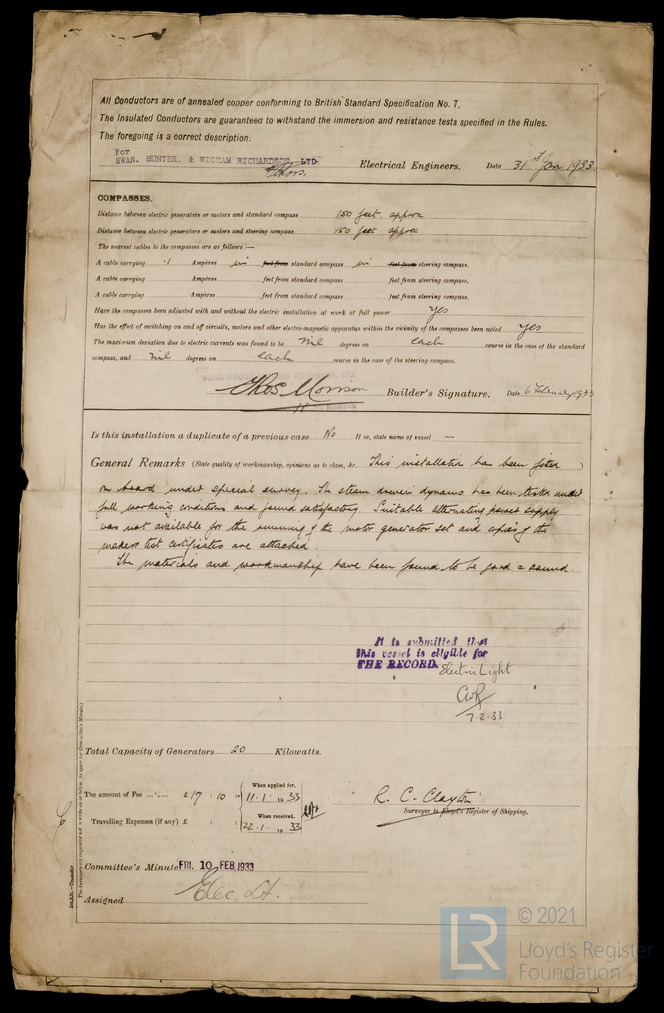 All Conductors are of annealed copper conforming to British Standard Specification No. 7.
The Insulated Conductors are guaranteed to withstand the immersion and resistance tests specified in the Rules.
The foregoing is a correct description.
For
SWAN, HUNTER, & WIGHAM RICHARDSON, LTD. Electrical Engineers. Date 31st Jan 1933.
COMPASSES.
Distance between electric generators or motors and standard compass 150 feet approx
Distance between electric generators or motors and steering compass 150 feet approx
The nearest cables to the compasses are as follows:—
A cable carrying .1 Ampères in feet from standard compass in feet from steering compass.
A cable carrying Ampères feet from standard compass feet from steering compass.
A cable carrying Ampères feet from standard compass feet from steering compass.
Have the compasses been adjusted with and without the electric installation at work at full power yes
Has the effect of switching on and off circuits, motors and other electro-magnetic apparatus within the vicinity of the compasses been noted yes
The maximum deviation due to electric currents was found to be nil degrees on each course in the case of the standard
compass, and nil degrees on each course in the case of the steering compass.
Thos Morrison Builder's Signature. Date 6 February 1933
Is this installation a duplicate of a previous case No If so, state name of vessel —
General Remarks (State quality of workmanship, opinions as to class, &c. This installation has been fitted )
on board under special survey. The steam driven dynamo has been tested under
full working conditions and found satisfactory. Suitable alternating power supply
was not available for the running of the motor generator set and copies of the
makers test certificates are attached.
The materials and workmanship have been found to be good & sound.
It is submitted that
this vessel is eligible for
THE RECORD. Electric Light
7.2.33
Total Capacity of Generators 20 Kilowatts.
When applied for,
The amount of Fee ... £17 : 10 : 11.1.1933
When received,
Travelling Expenses (if any) £ : : 22.1.1933
R. C. Clayton
Surveyor to Lloyd's Register of Shipping.
Committee's Minute FRI. 10 FEB 1933
Assigned Elec. Lt.
© 2021
LR
Lloyd's Register
Foundation